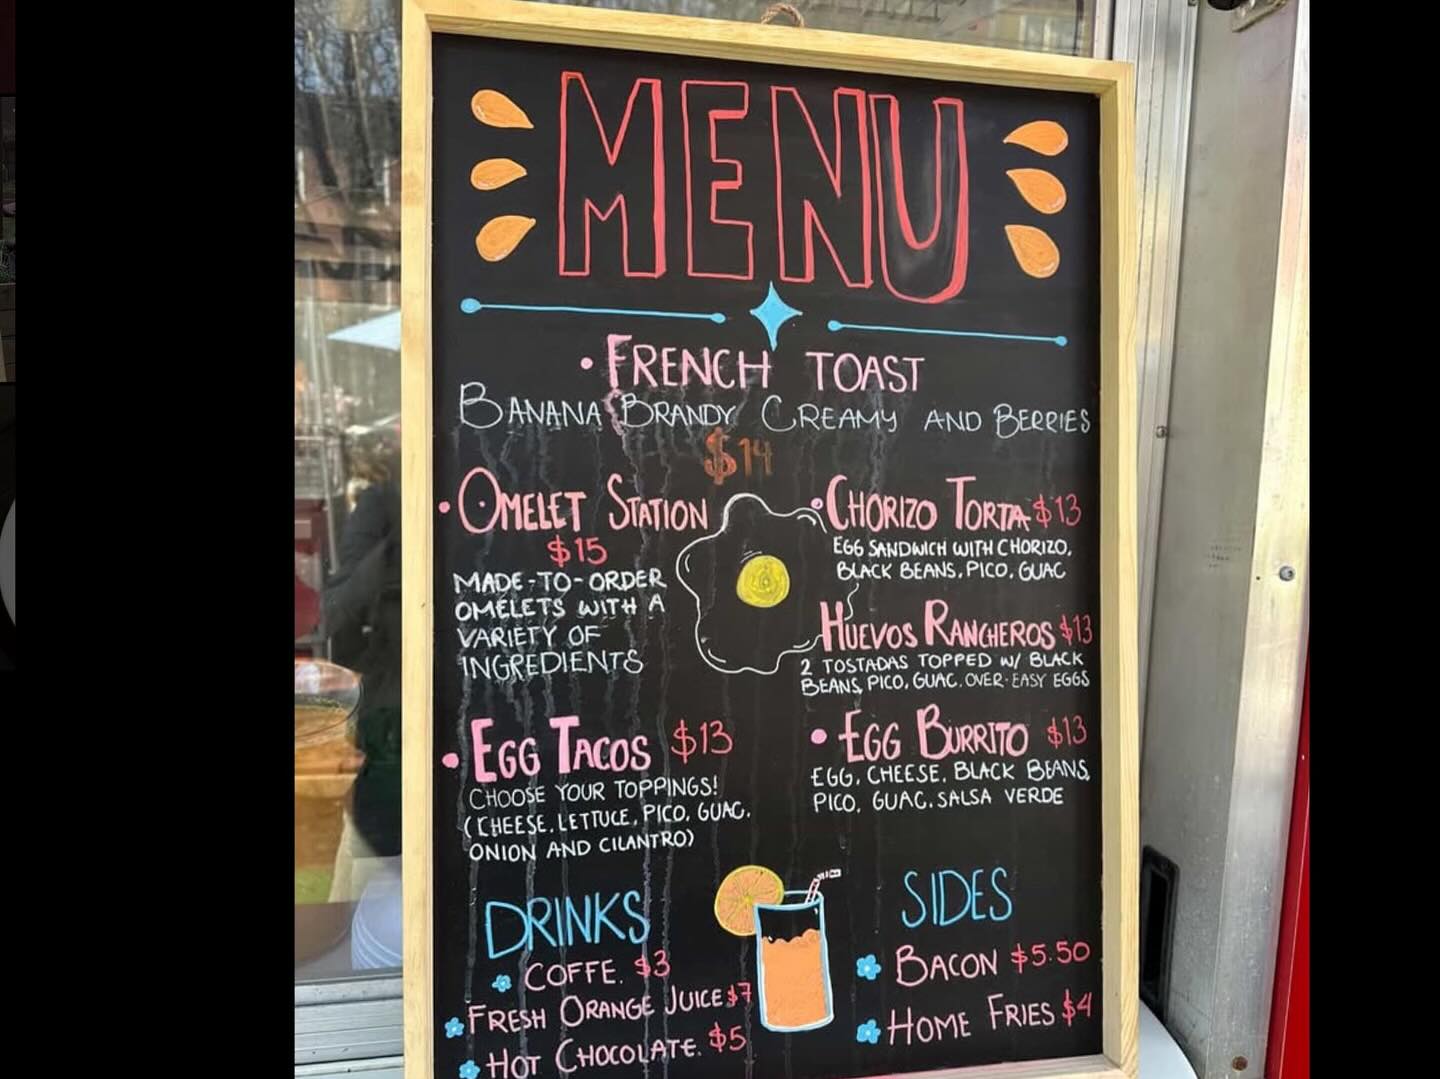 MENU
• FRENCH TOAST
BANANA BRANDY CREAMY AND BERRIES
$14
• OMELET STATION
$15
MADE-TO-ORDER
OMELETS WITH A
VARIETY OF
INGREDIENTS
• CHORIZO TORTA $13
EGG SANDWICH WITH CHORIZO,
BLACK BEANS, PICO, GUAC
HUEVOS RANCHEROS $13
2 TOSTADAS TOPPED W/ BLACK
BEANS, PICO, GUAC, OVER-EASY EGGS
• EGG TACOS $13
CHOOSE YOUR TOPPINGS!
(CHEESE, LETTUCE, PICO, GUAC,
ONION AND CILANTRO)
• EGG BURRITO $13
EGG, CHEESE, BLACK BEANS,
PICO, GUAC, SALSA VERDE
DRINKS
COFFE. $3
FRESH ORANGE JUICE $7
HOT CHOCOLATE. $5
SIDES
BACON $5.50
HOME FRIES $4